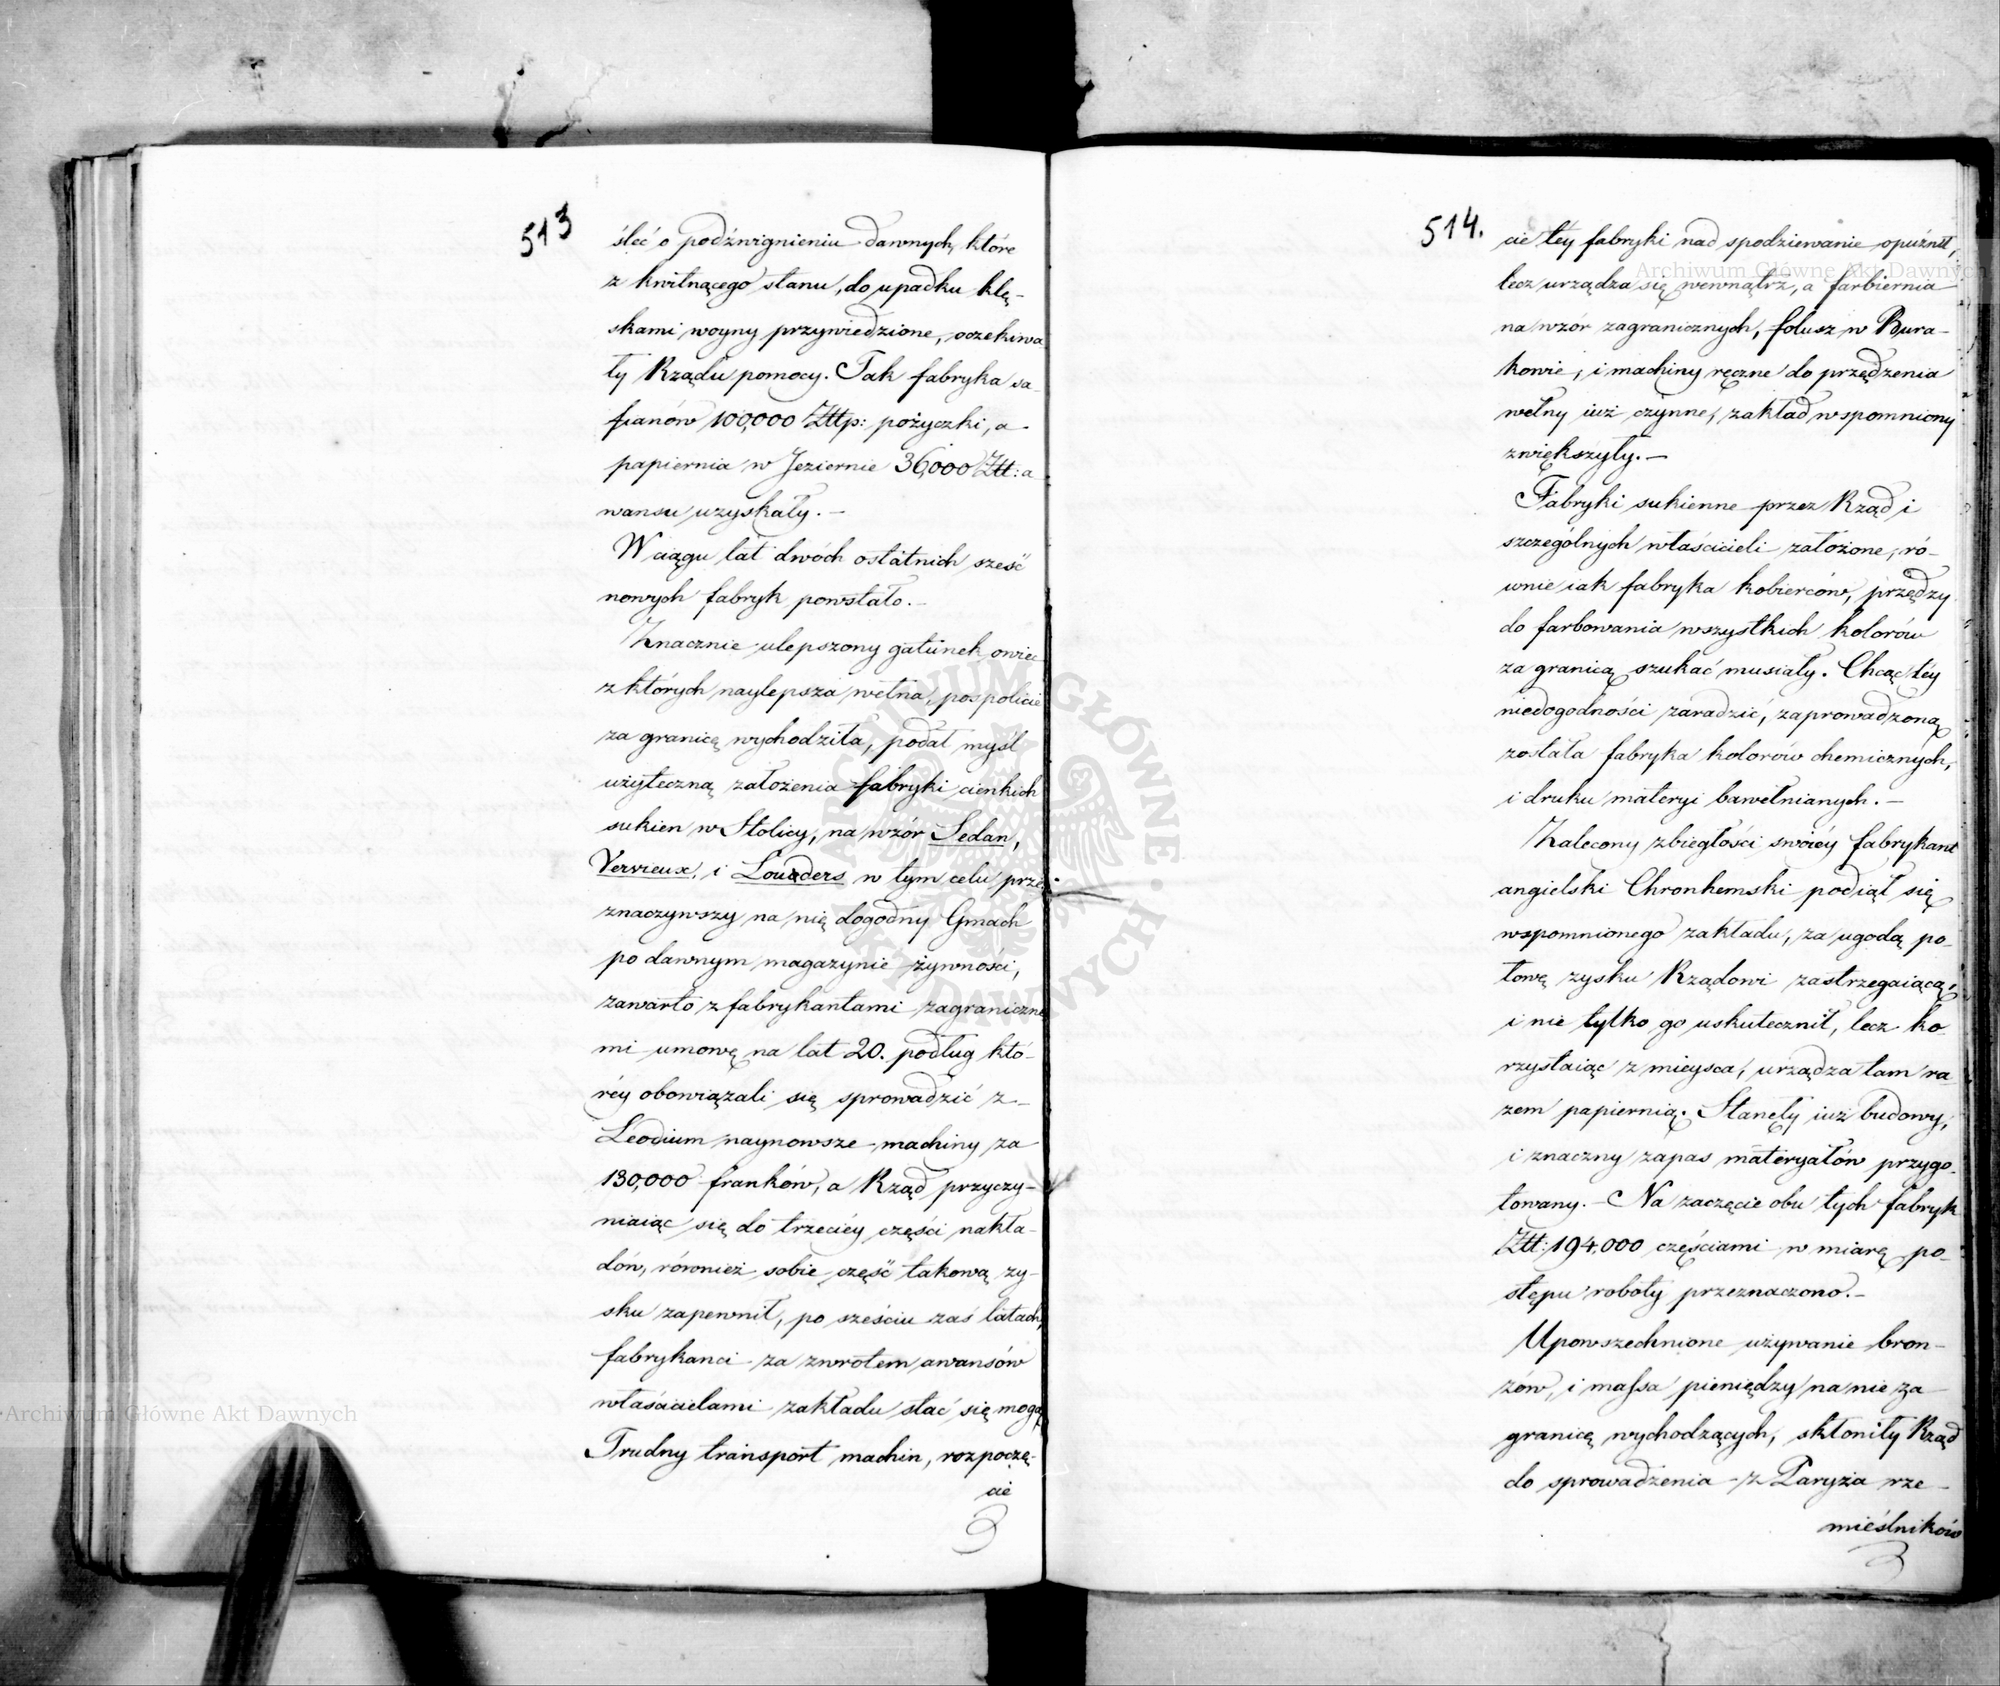 513
śleć o podźwignieniu dawnych, które
z kwitnącego stanu, do upadku klę-
skami woyny przywiedzione, oczekiwa
ły Rządu pomocy. Tak fabryka sa-
fianów 100,000 Złtp: pożyczki, a
papiernia w Jeziernie 36,000 Złt: a
wansu uzyskały. -
W ciągu lat dwóch ostatnich sześć
nowych fabryk powstało. -
Znacznie ulepszony gatunek owiec
z których naylepsza wełna, pospolicie
za granicę wychodziła, podał myśl
użyteczną założenia fabryki cienkich
sukien w Stolicy, na wzór Sedan,
Vervieux, i Louders w tym celu prze
znaczywszy na nię dogodny Gmach
po dawnym magazynie żywności,
zawarto z fabrykantami zagraniczne
mi umowę na lat 20. podług któ-
réy obowiązali się sprowadzić z -
Leodium naynowsze machiny za
130,000 franków, a Rząd przyczy-
niaiąc się do trzeciéy części nakła-
dów, również sobie część takową zy-
sku zapewnił, po sześciu zaś latach,
fabrykanci za zwrotem awansów
właścicielami zakładu stać się mogą
Trudny transport machin, rozpoczę-
cie
514.
cie tey fabryki nad spodziewanie opuźnił,
lecz urządza się wewnątrz, a farbiernia
na wzór zagranicznych, folusz w Bura-
kowie, i machiny ręczne do przędzenia
wełny iuż czynne, zakład wspomniony
zwiększyły. -
Fabryki sukienne przez Rząd i
szczególnych właścicieli założone, ró-
wnie iak fabryka kobierców, przędzy
do farbowania wszystkich kolorów
za granicą szukać musiały. Chcąc téy
niedogodności zaradzić, zaprowadzoną
została fabryka kolorów chemicznych,
i druku materyi bawełnianych. -
Zalecony zbiegłości swoiéy fabrykant
angielski Chronhemski podiął się
wspomnionego zakładu, za ugodą po-
łowę zysku Rządowi zastrzegaiącą,
i nie tylko go uskutecznił, lecz ko-
rzystaiąc z mieysca, urządza tam ra
zem papiernią. Stanęły iuż budowy,
i znaczny zapas materyałów przygo-
towany. - Na zaczęcie obu tych fabryk
Złt: 194,000 częściami w miarę po-
stępu roboty przeznaczono. -
Upowszechnione używanie bron-
zów, i massa pieniędzy na nie za
granicę wychodzących, skłoniły Rząd
do sprowadzenia z Paryża rze-
mieślników
Archiwum Główne Akt Dawnych
Archiwum Główne Akt Dawnych
ARCHIWUM GŁÓWNE AKT DAWNYCH